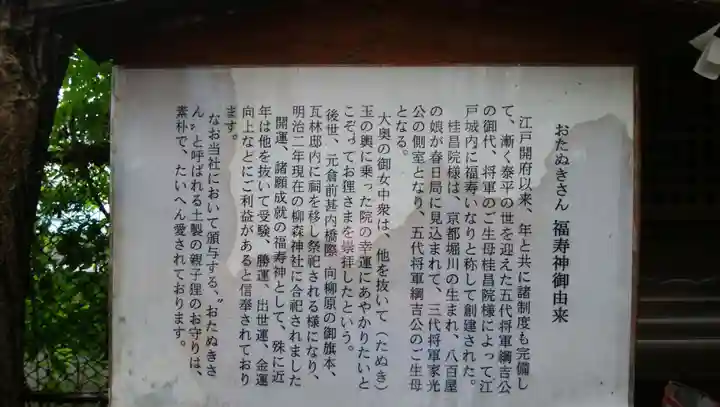 おたぬきさん 福寿神御由来
江戸開府以来、年と共に諸制度も完備し
て、漸く泰平の世を迎えた五代将軍綱吉公
の御代、将軍のご生母桂昌院様によって江
戸城内に福寿いなりと称して創建された。
桂昌院様は、京都堀川の生まれ、八百屋
の娘が春日局に見込まれて、三代将軍家光
公の側室となり、五代将軍綱吉公のご生母
となる。
大奥の御女中衆は、他を抜いて（たぬき）
玉の輿に乗った院の幸運にあやかりたいと
こぞってお狸さまを崇拝したという。
後世、元倉前甚内橋際 向柳原の御旗本、
瓦林邸内に祠を移し祭祀される様になり、
明治二年現在の柳森神社に合祀されました
開運、諸願成就の福寿神として、殊に近
年は他を抜いて受験、勝運、出世運、金運
向上などにご利益があると信奉されており
ます。
なお当社において頒与する、〝おたぬきさ
ん〟と呼ばれる土製の親子狸のお守りは、
素朴で、たいへん愛されております。